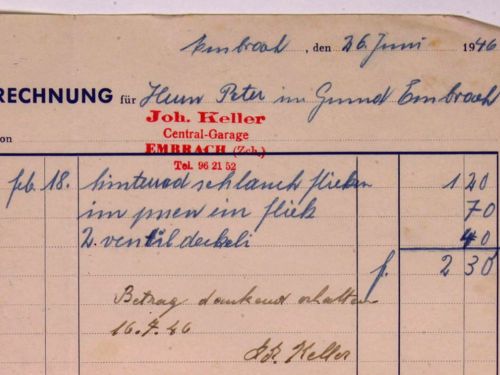 Embrach, den 26. Juni 1946
RECHNUNG für Herrn Peter im Grund Embrach
Joh. Keller
Central-Garage
EMBRACH (Zch.)
Tel. 96 21 52
on
feb. 18. hinterrad schlauch flicken 1 20
im pneu ein fliek 70
2 ventil deckeli 40
fr. 2 30
Betrag dankend erhalten
16.7.46
Joh. Keller